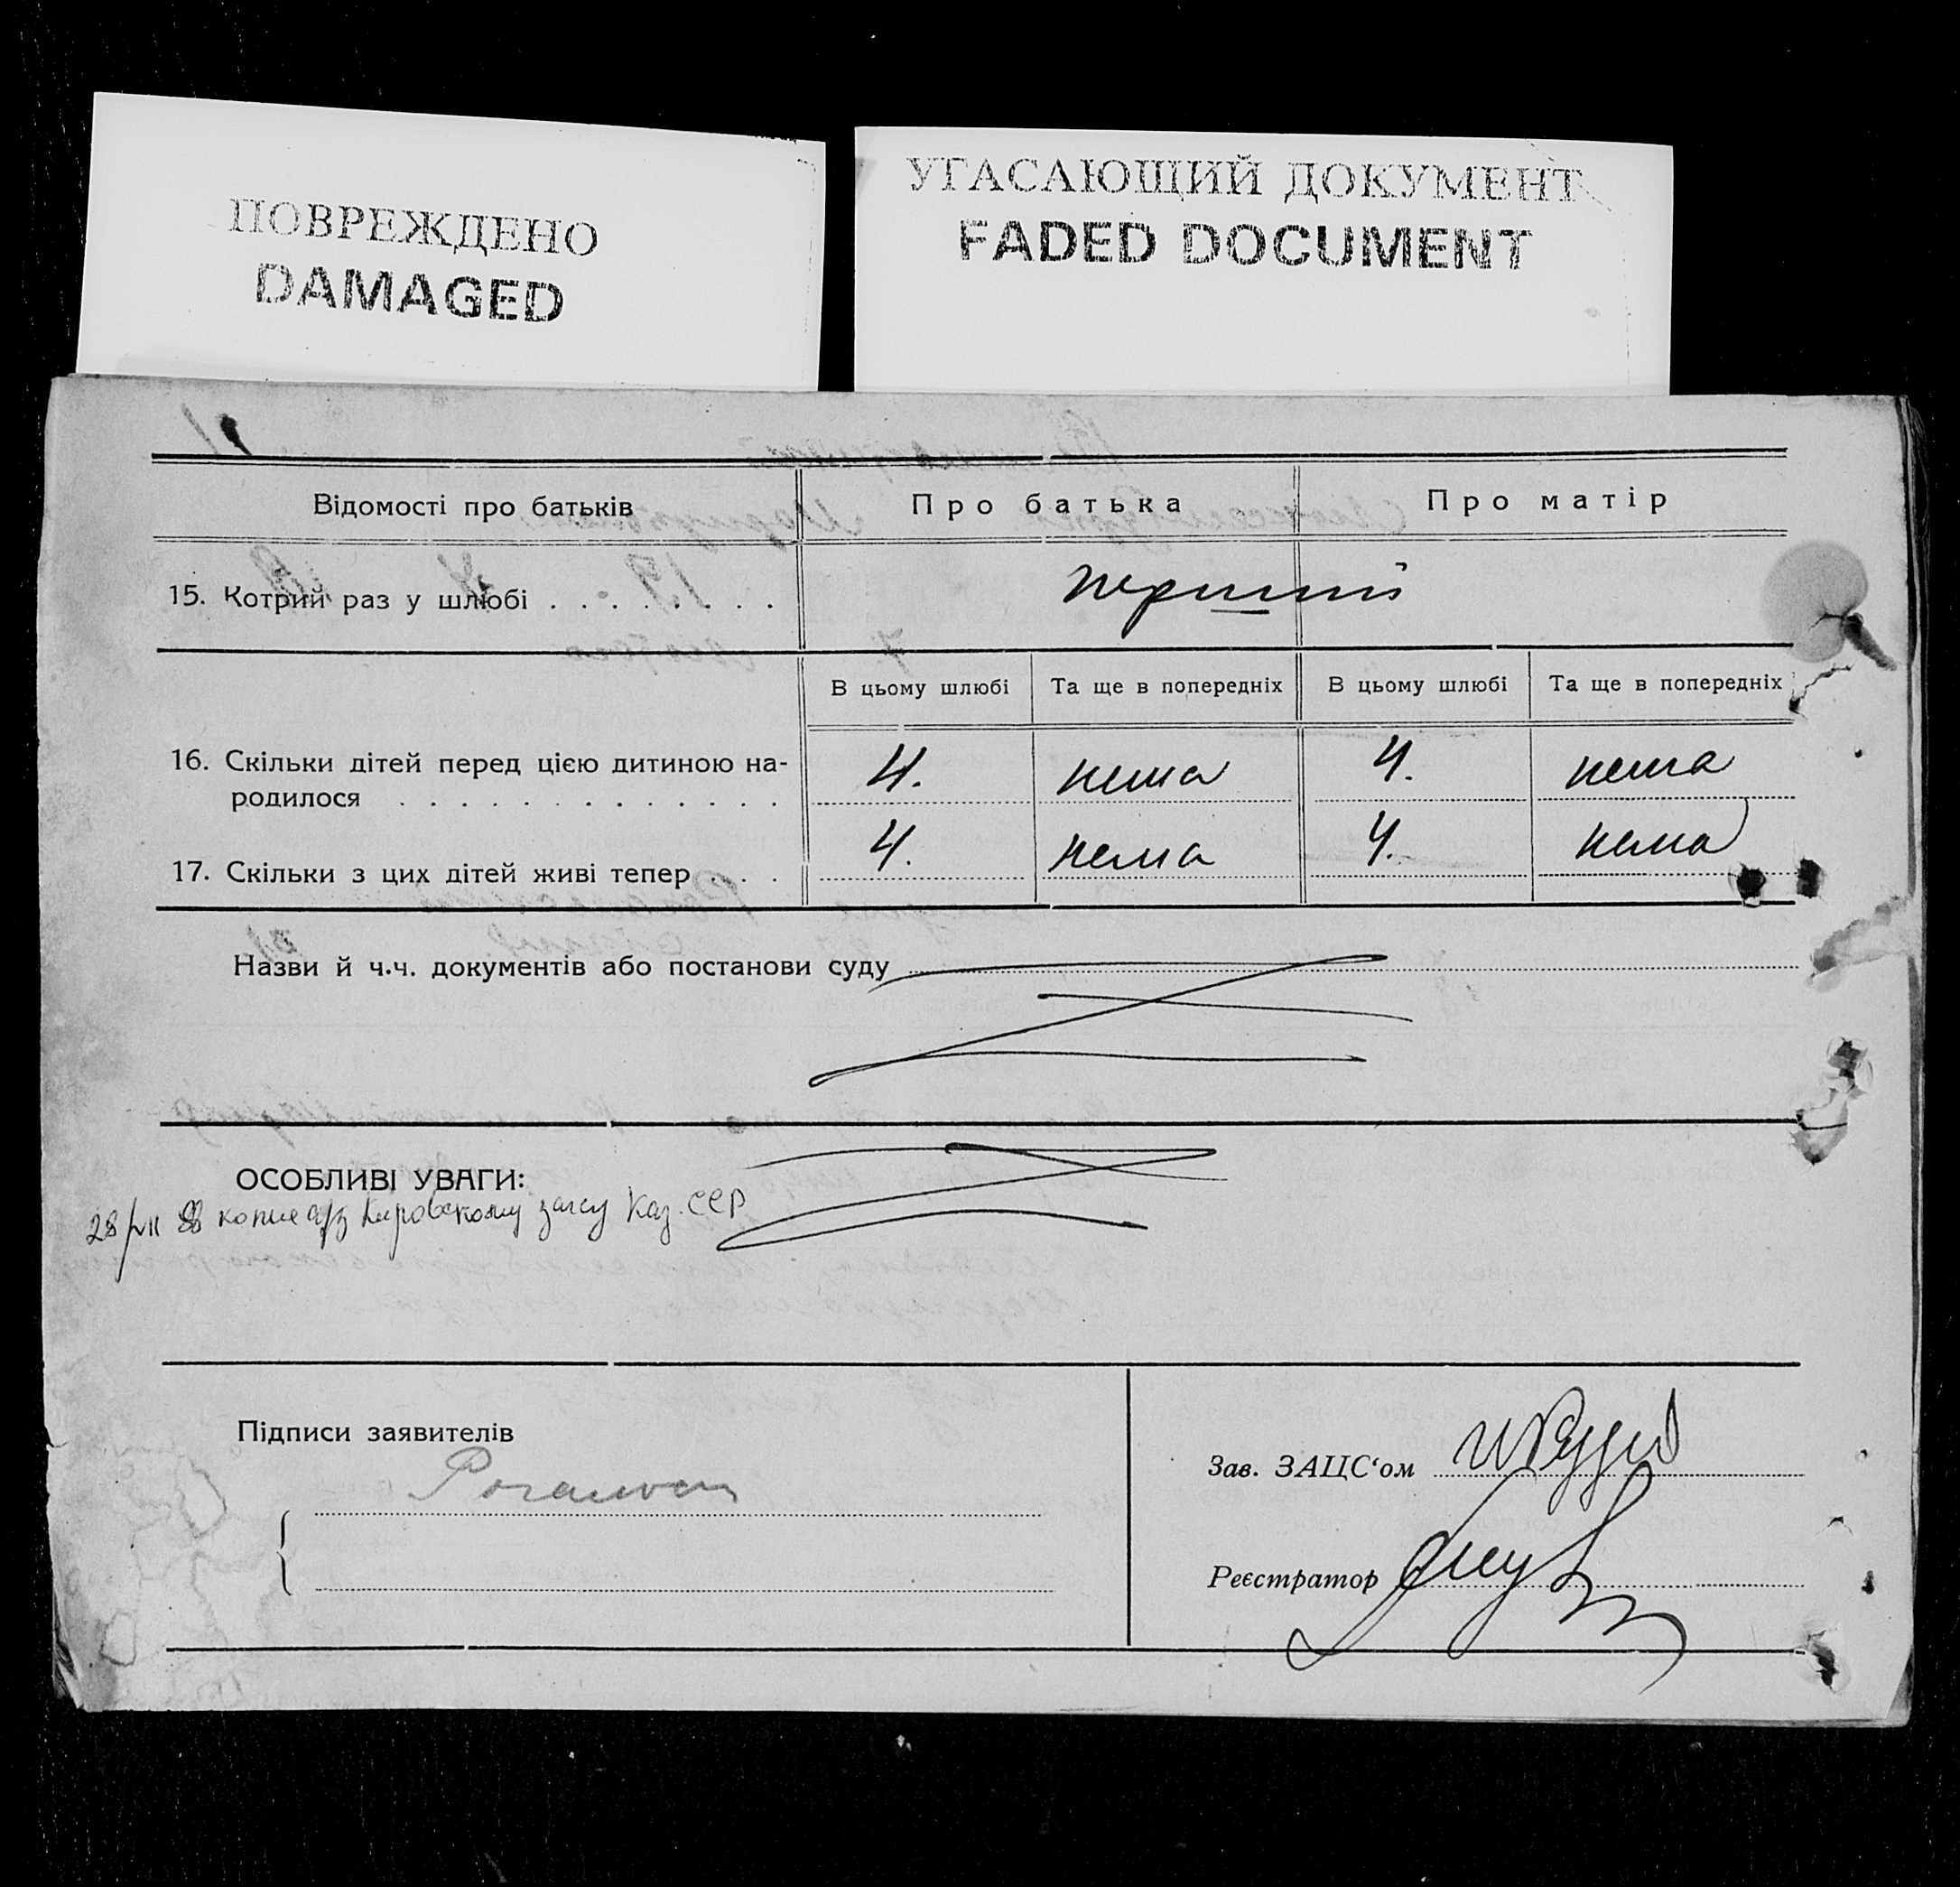 ПОВРЕЖДЕНО
DAMAGED
УГАСАЮЩИЙ ДОКУМЕНТ
FADED DOCUMENT
Відомості про батьків
Про батька
Про матір
15. Котрий раз у шлюбі . . . . . . . .
перший
В цьому шлюбі
Та ще в попередніх
В цьому шлюбі
Та ще в попередніх
16. Скільки дітей перед цією дитиною на-
родилося . . . . . . . . . . . . .
4. нема 4. нема
17. Скільки з цих дітей живі тепер . . .
4. нема 4. нема
Назви й ч.ч. документів або постанови суду
ОСОБЛИВІ УВАГИ:
28/VII 88 копие Кировскому загсу Каз. ССР
Підписи заявителів
Зав. ЗАЦС‘ом
Реєстратор